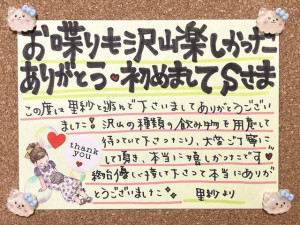 お喋りも沢山楽しかった
ありがとう♥初めましてSさま
この度は里紗と遊んで下さいましてありがとうござい
ました!沢山の種類の飲み物を用意して
待っていて下さったり、大変ご丁寧に
して頂き、本当に嬉しかったです♥
終始優しく接して下さって本当にありが
とうございました
里紗より
thank
you